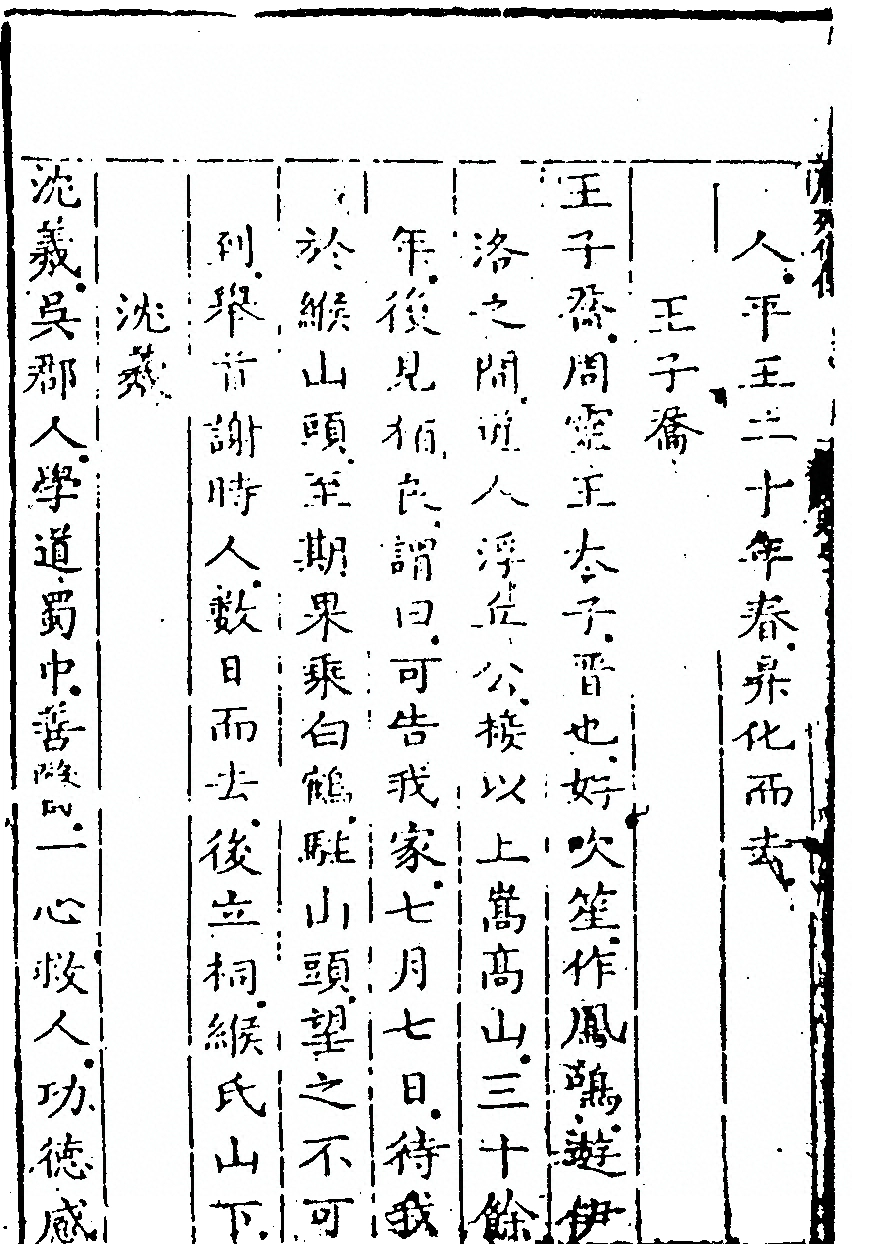 人平王二十年春昇化而去
王子喬
王子喬周靈王太子晋也好吹笙作鳳鳴遊伊
洛之間道人浮丘公接以上嵩高山三十餘
年後見栢良謂曰可告我家七月七日待我
於緱山頭至期果乘白鶴駐山頭望之不可
到舉首謝時人數日而去後立祠緱氏山下
沈羲
沈羲吳郡人學道蜀中善一心救人功德感